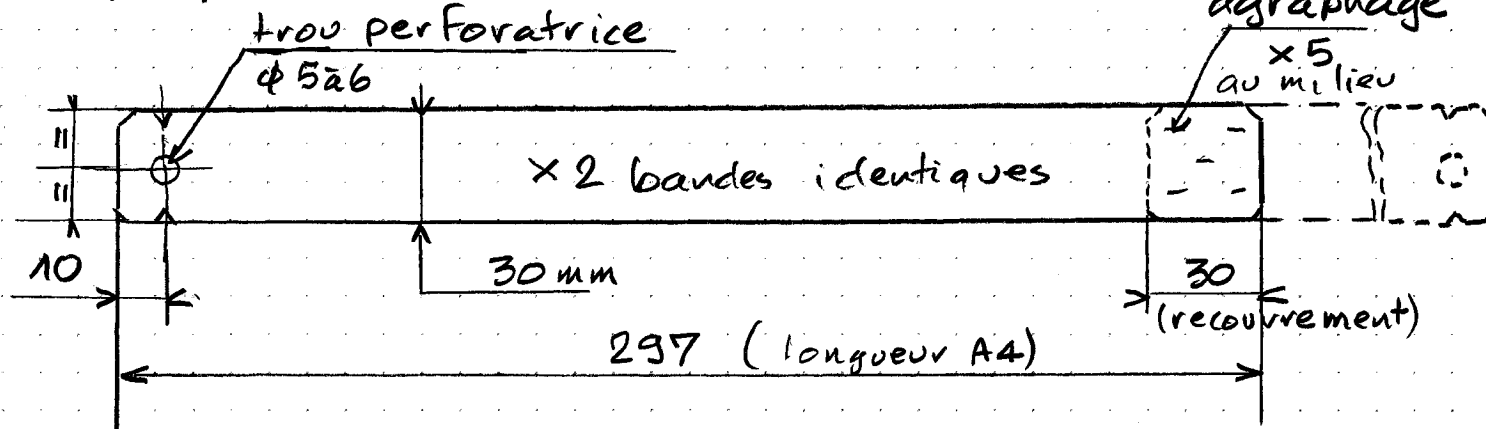 trou perforatrice
ϕ 5 à 6
agraphage
× 5
au milieu
=
=
× 2 bandes identiques
10
30 mm
30
(recouvrement)
297 (longueur A4)